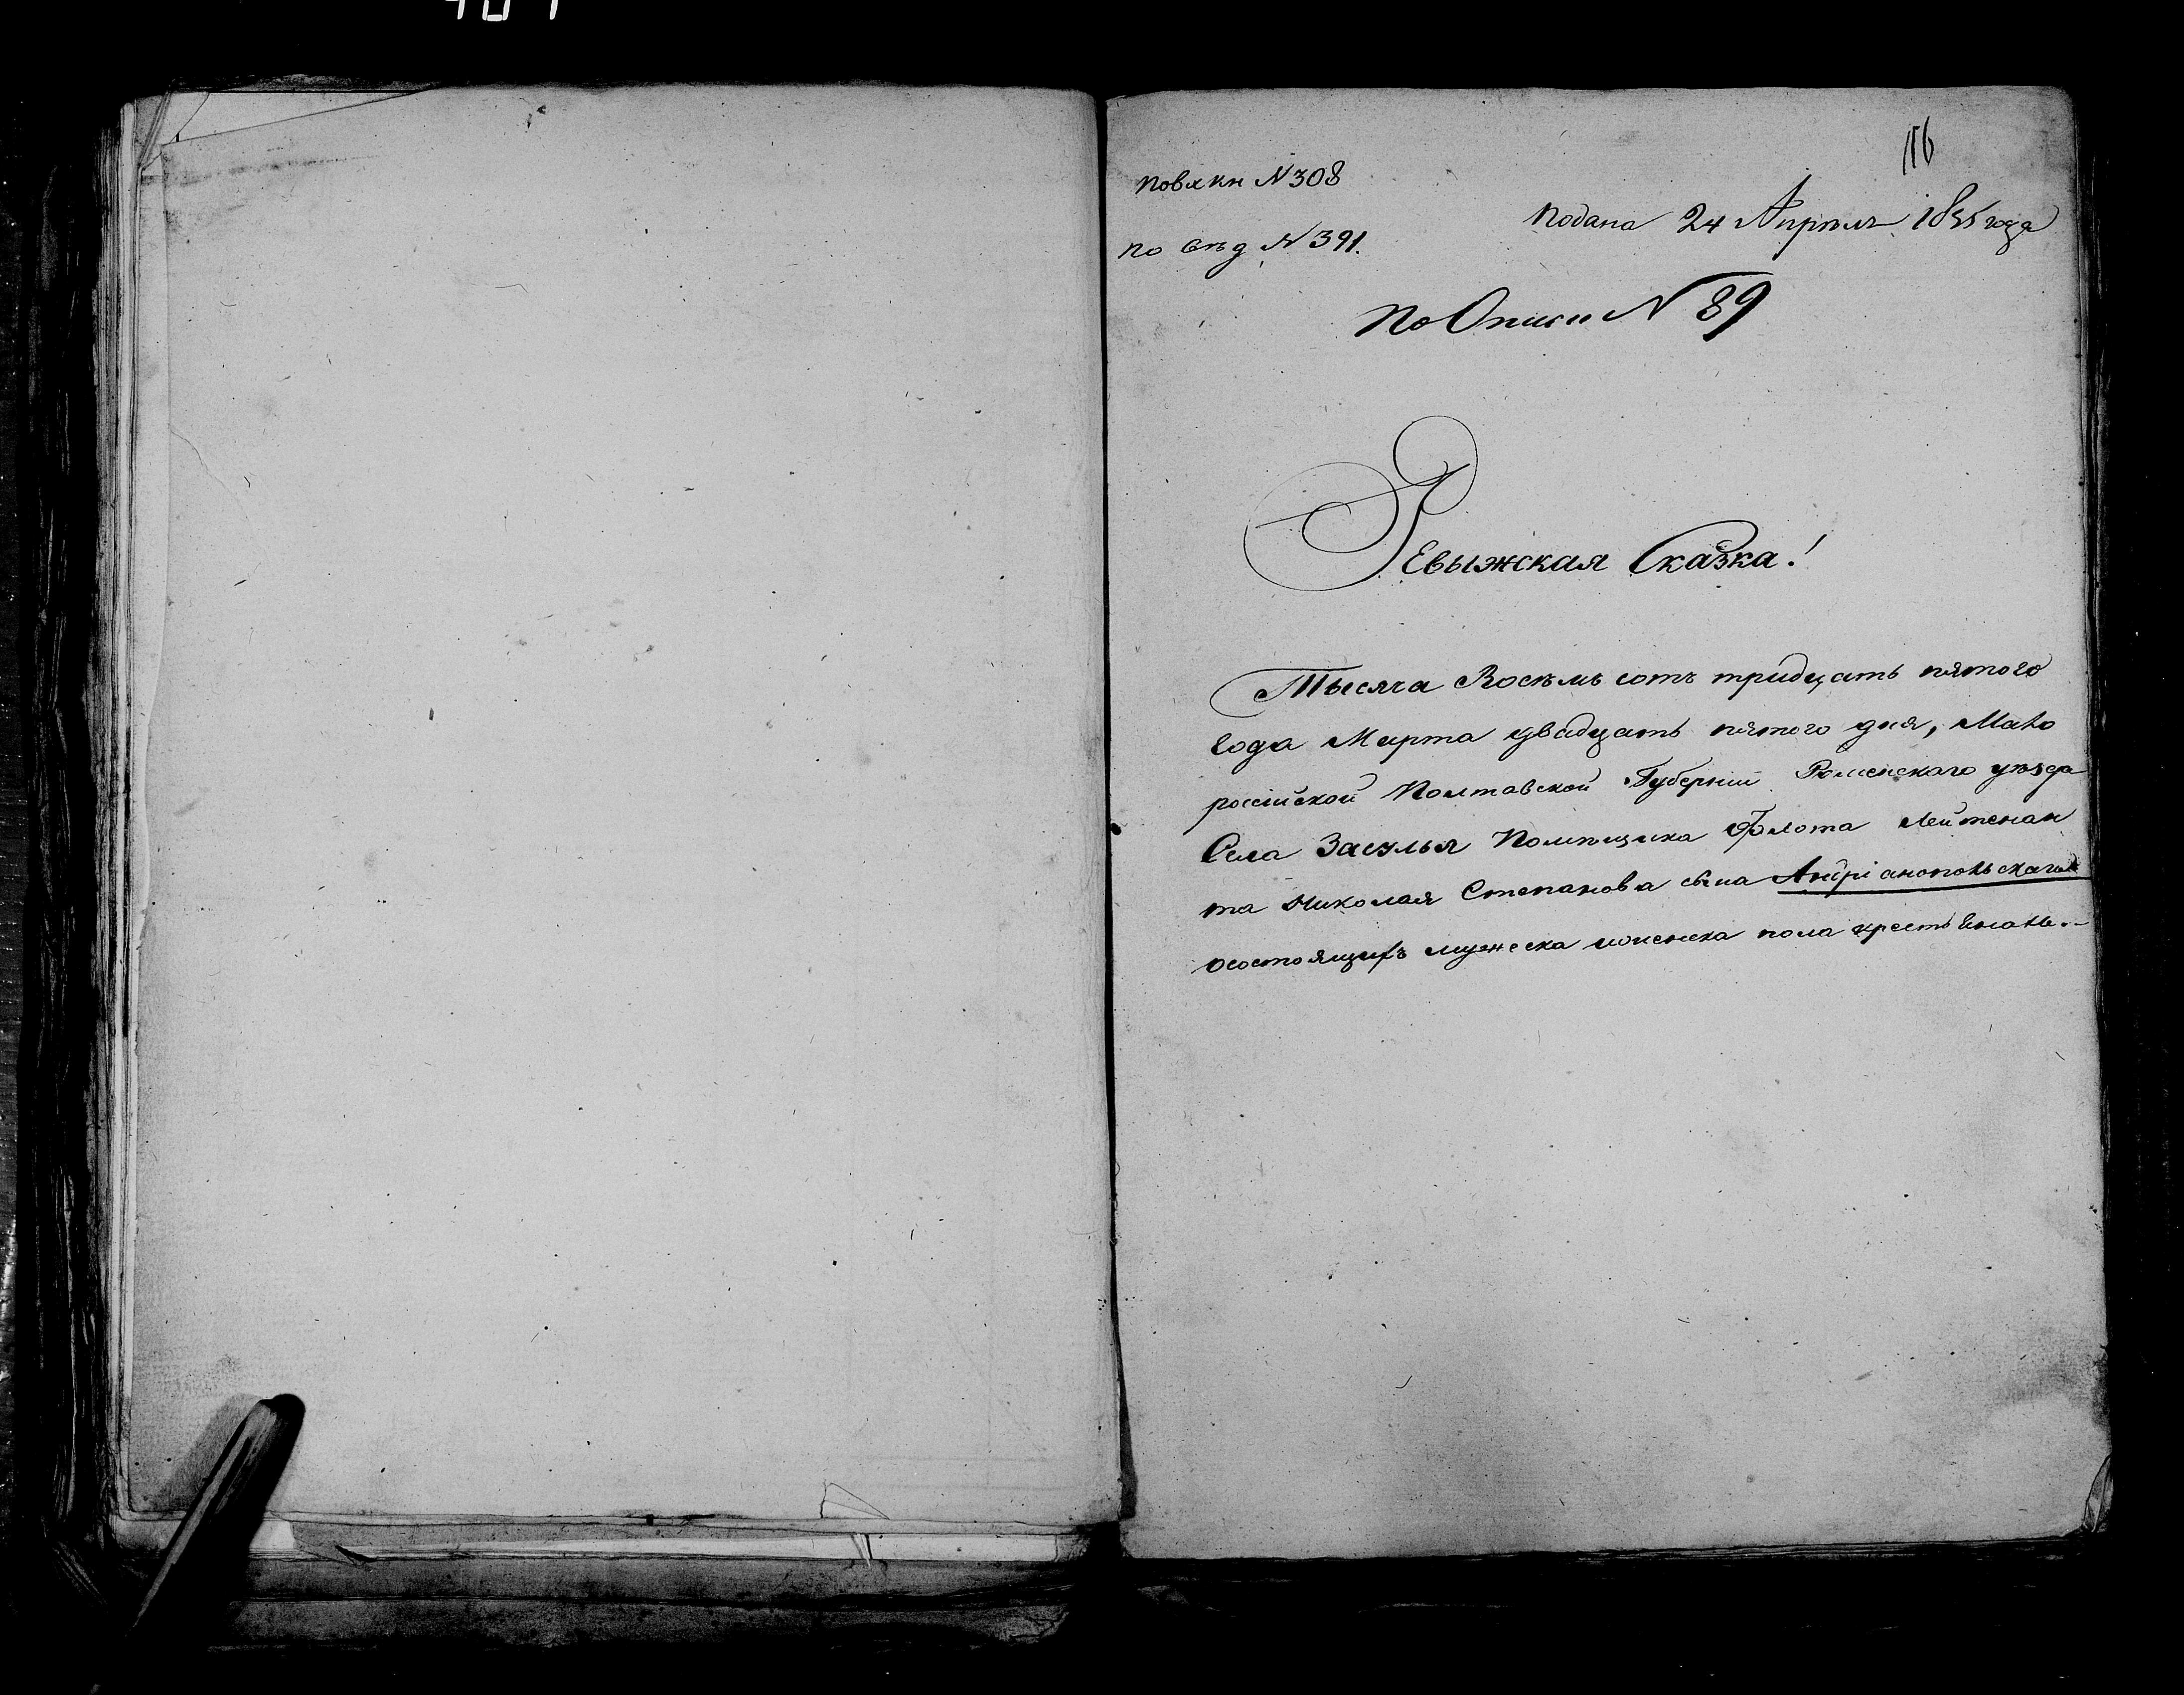 116
по вх кн № 308
подана 24 Апреля 1835 года
по вѣд № 391.
По Описи № 89
Ревыжская Сказка!
Тысяча Восѣмь сотъ тридцать пятого
года Марта двадцать пятого дня, Мало
россійской Полтавской Губерніи Роменского уѣзда
Села Засулья Помѣщика Флота Лейтенан
та Николая Степанова сына Андріанопольскаго
осостоящихъ мужеска иженска пола крестьянахъ.-